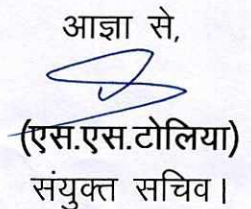 आज्ञा से,
(एस.एस.टोलिया)
संयुक्त सचिव।